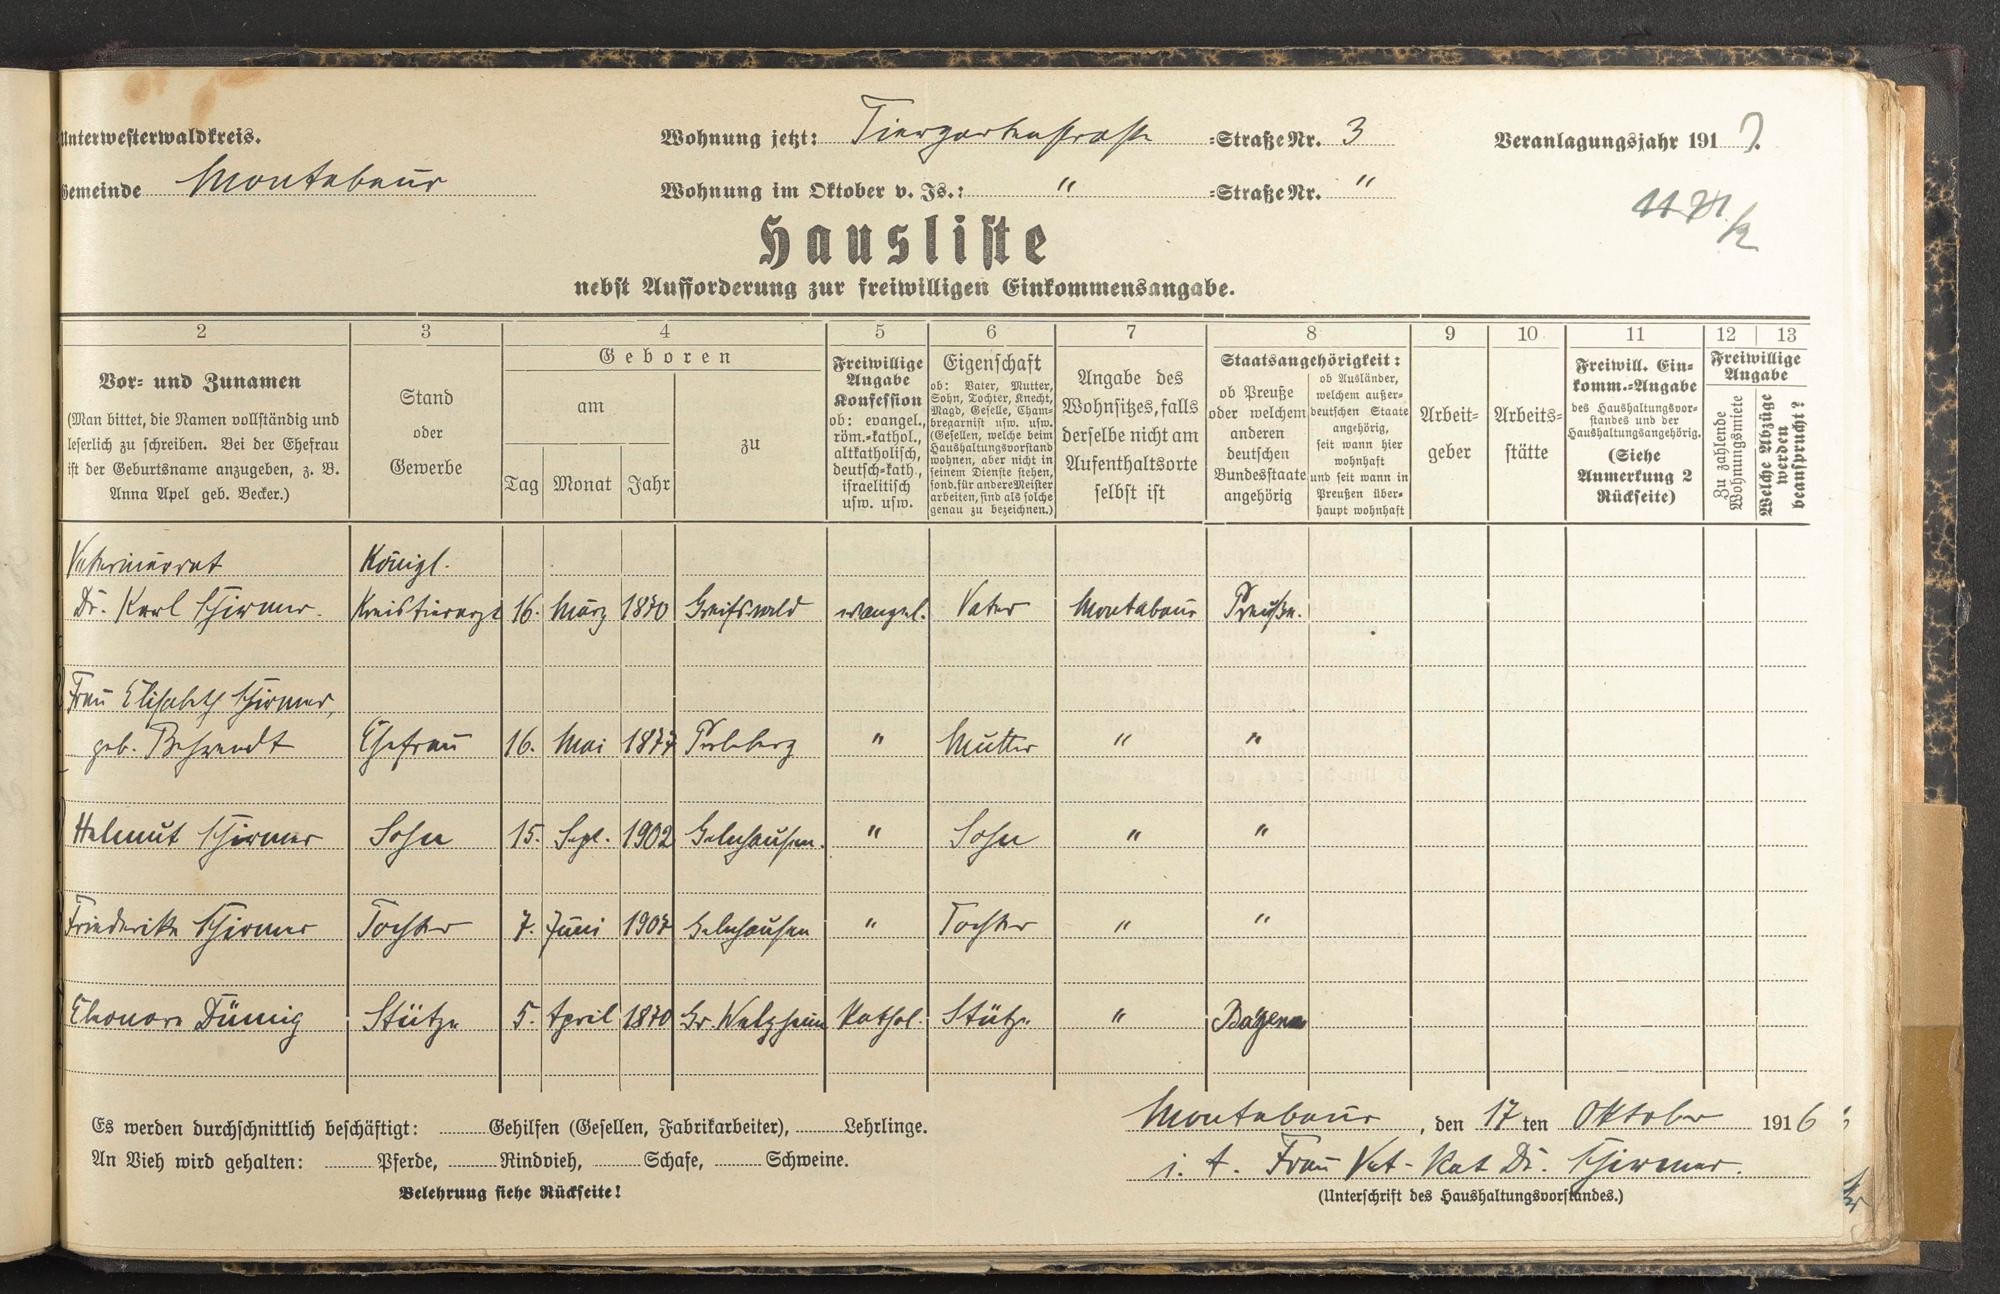 Unterwesterwaldkreis.
Gemeinde Montabaur
Wohnung jetzt: Tiergartenstraße =Straße Nr. 3
Wohnung im Oktober v. Js.: " =Straße Nr. "
Veranlagungsjahr 1917.
Hausliste
nebst Aufforderung zur freiwilligen Einkommensangabe.
2 3 4 5 6 7 8 9 10 11 12 13
Vor- und Zunamen
(Man bittet, die Namen vollständig und
leserlich zu schreiben. Bei der Ehefrau
ist der Geburtsname anzugeben, z. B.
Anna Apel geb. Becker.)
Stand
oder
Gewerbe
Geboren
am
Tag Monat Jahr
zu
Freiwillige
Angabe
Konfession
ob: evangel.,
röm.-kathol.,
altkatholisch,
deutsch-kath.,
israelitisch
usw. usw.
Eigenschaft
ob: Vater, Mutter,
Sohn, Tochter, Knecht,
Magd, Geselle, Cham-
bregarnist usw. usw.
(Gesellen, welche beim
Haushaltungsvorstand
wohnen, aber nicht in
seinem Dienste stehen,
sond. für andere Meister
arbeiten, sind als solche
genau zu bezeichnen.)
Angabe des
Wohnsitzes, falls
derselbe nicht am
Aufenthaltsorte
selbst ist
Staatsangehörigkeit:
ob Preuße
oder welchem
anderen
deutschen
Bundesstaate
angehörig
ob Ausländer,
welchem außer-
deutschen Staate
angehörig,
seit wann hier
wohnhaft
und seit wann in
Preußen über-
haupt wohnhaft
Arbeit-
geber
Arbeits-
stätte
Freiwill. Ein-
komm.-Angabe
des Haushaltungsvor-
standes und der
Haushaltungsangehörig.
(Siehe
Anmerkung 2
Rückseite)
Freiwillige
Angabe
Zu zahlende
Wohnungsmiete
Welche Abzüge
werden
beansprucht?
Veterinärrat Königl.
Dr. Karl Schirmer. Kreistierarzt 16. März 1870 Greifswald evangel. Vater Montabaur Preuße.
Frau Elisabeth Schirmer,
geb. Behrendt Ehefrau 16. Mai 1877 Perleberg " Mutter " "
Helmut Schirmer Sohn 15. Sept. 1902 Gelnhausen. " Sohn " "
Friederike Schirmer Tochter 7. Juni 1907 Gelnhausen " Tochter " "
Eleonore Dümig Stütze 5. April 1870 Gr. Welzheim Kathol. Stütze " Bayern
Es werden durchschnittlich beschäftigt: Gehilfen (Gesellen, Fabrikarbeiter), Lehrlinge.
An Vieh wird gehalten: Pferde, Rindvieh, Schafe, Schweine.
Belehrung siehe Rückseite!
Montabaur, den 17 ten Oktober 1916
Frau Vet-Rat Dr. Schirmer.
(Unterschrift des Haushaltungsvorstandes.)